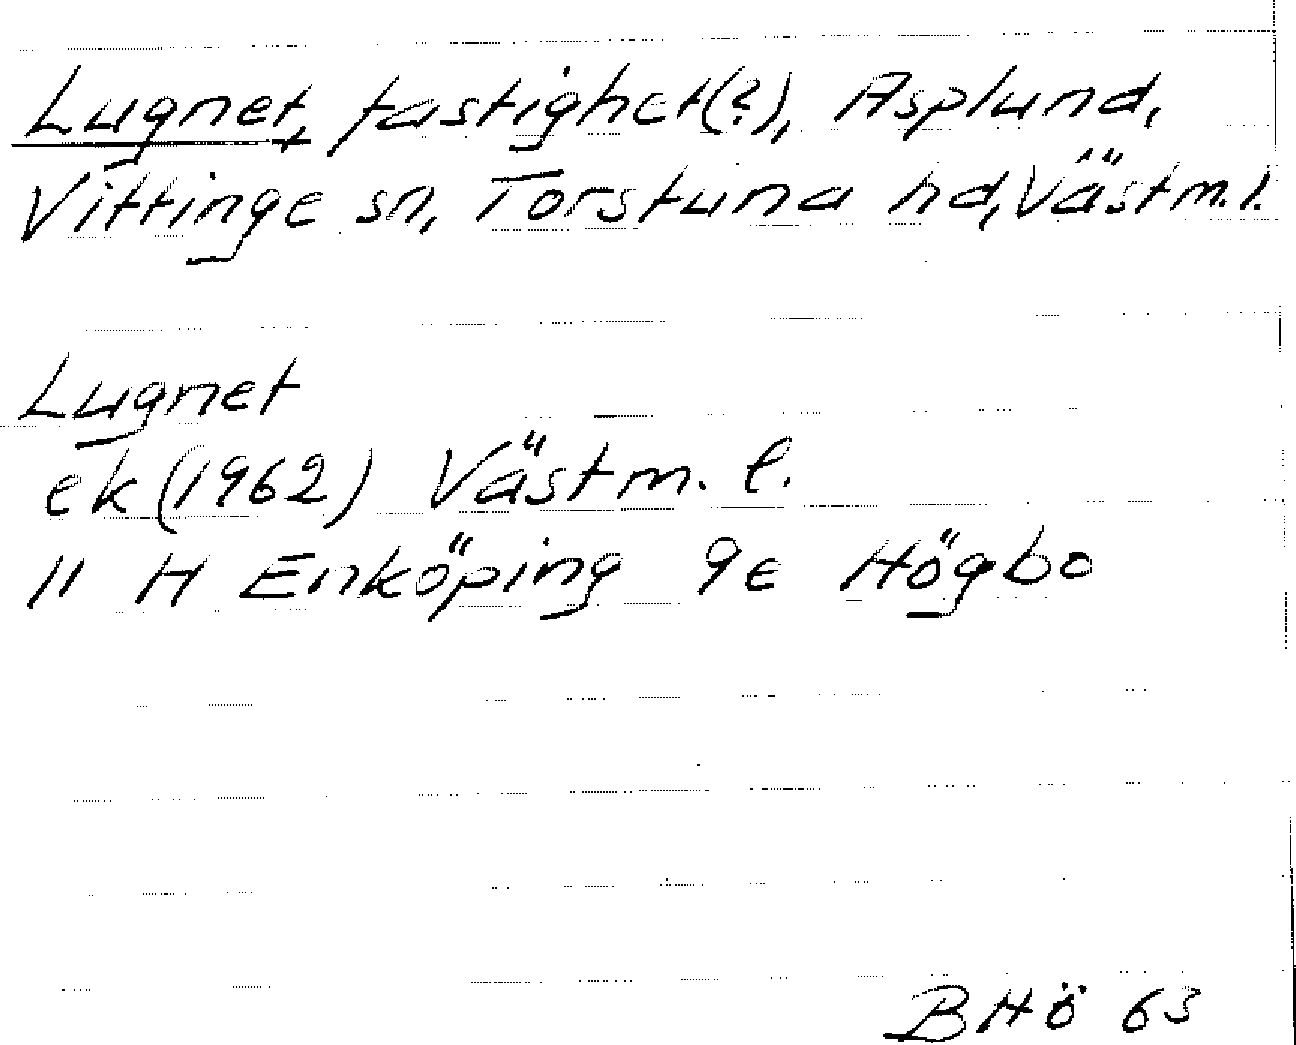 Lugnet, fastighet(?), Asplund,
Vittinge sn, Torstuna hd, Västm.l.
Lugnet
ek (1962) Västm. l.
11 H Enköping 9e Högbo
BHÖ 63